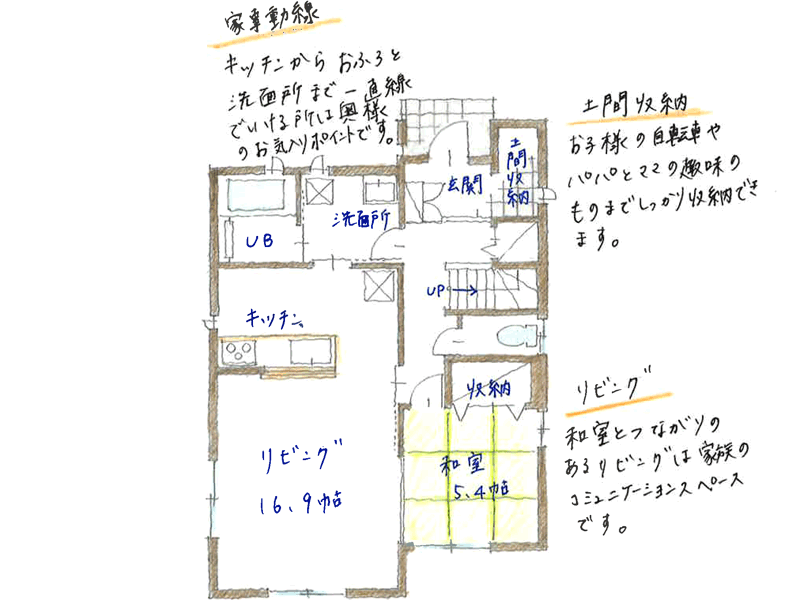 家事動線
キッチンから おふろと
洗面所まで一直線
でいける所は奥様
のお気入りポイントです。
土間収納
お子様の自転車や
パパとママの趣味の
ものまでしっかり収納でき
ます。
玄関
土間収納
洗面所
UB
UP
キッチン
収納
リビング
16.9帖
和室
5.4帖
リビング
和室とつながりの
あるリビングは家族の
コミュニケーションスペース
です。